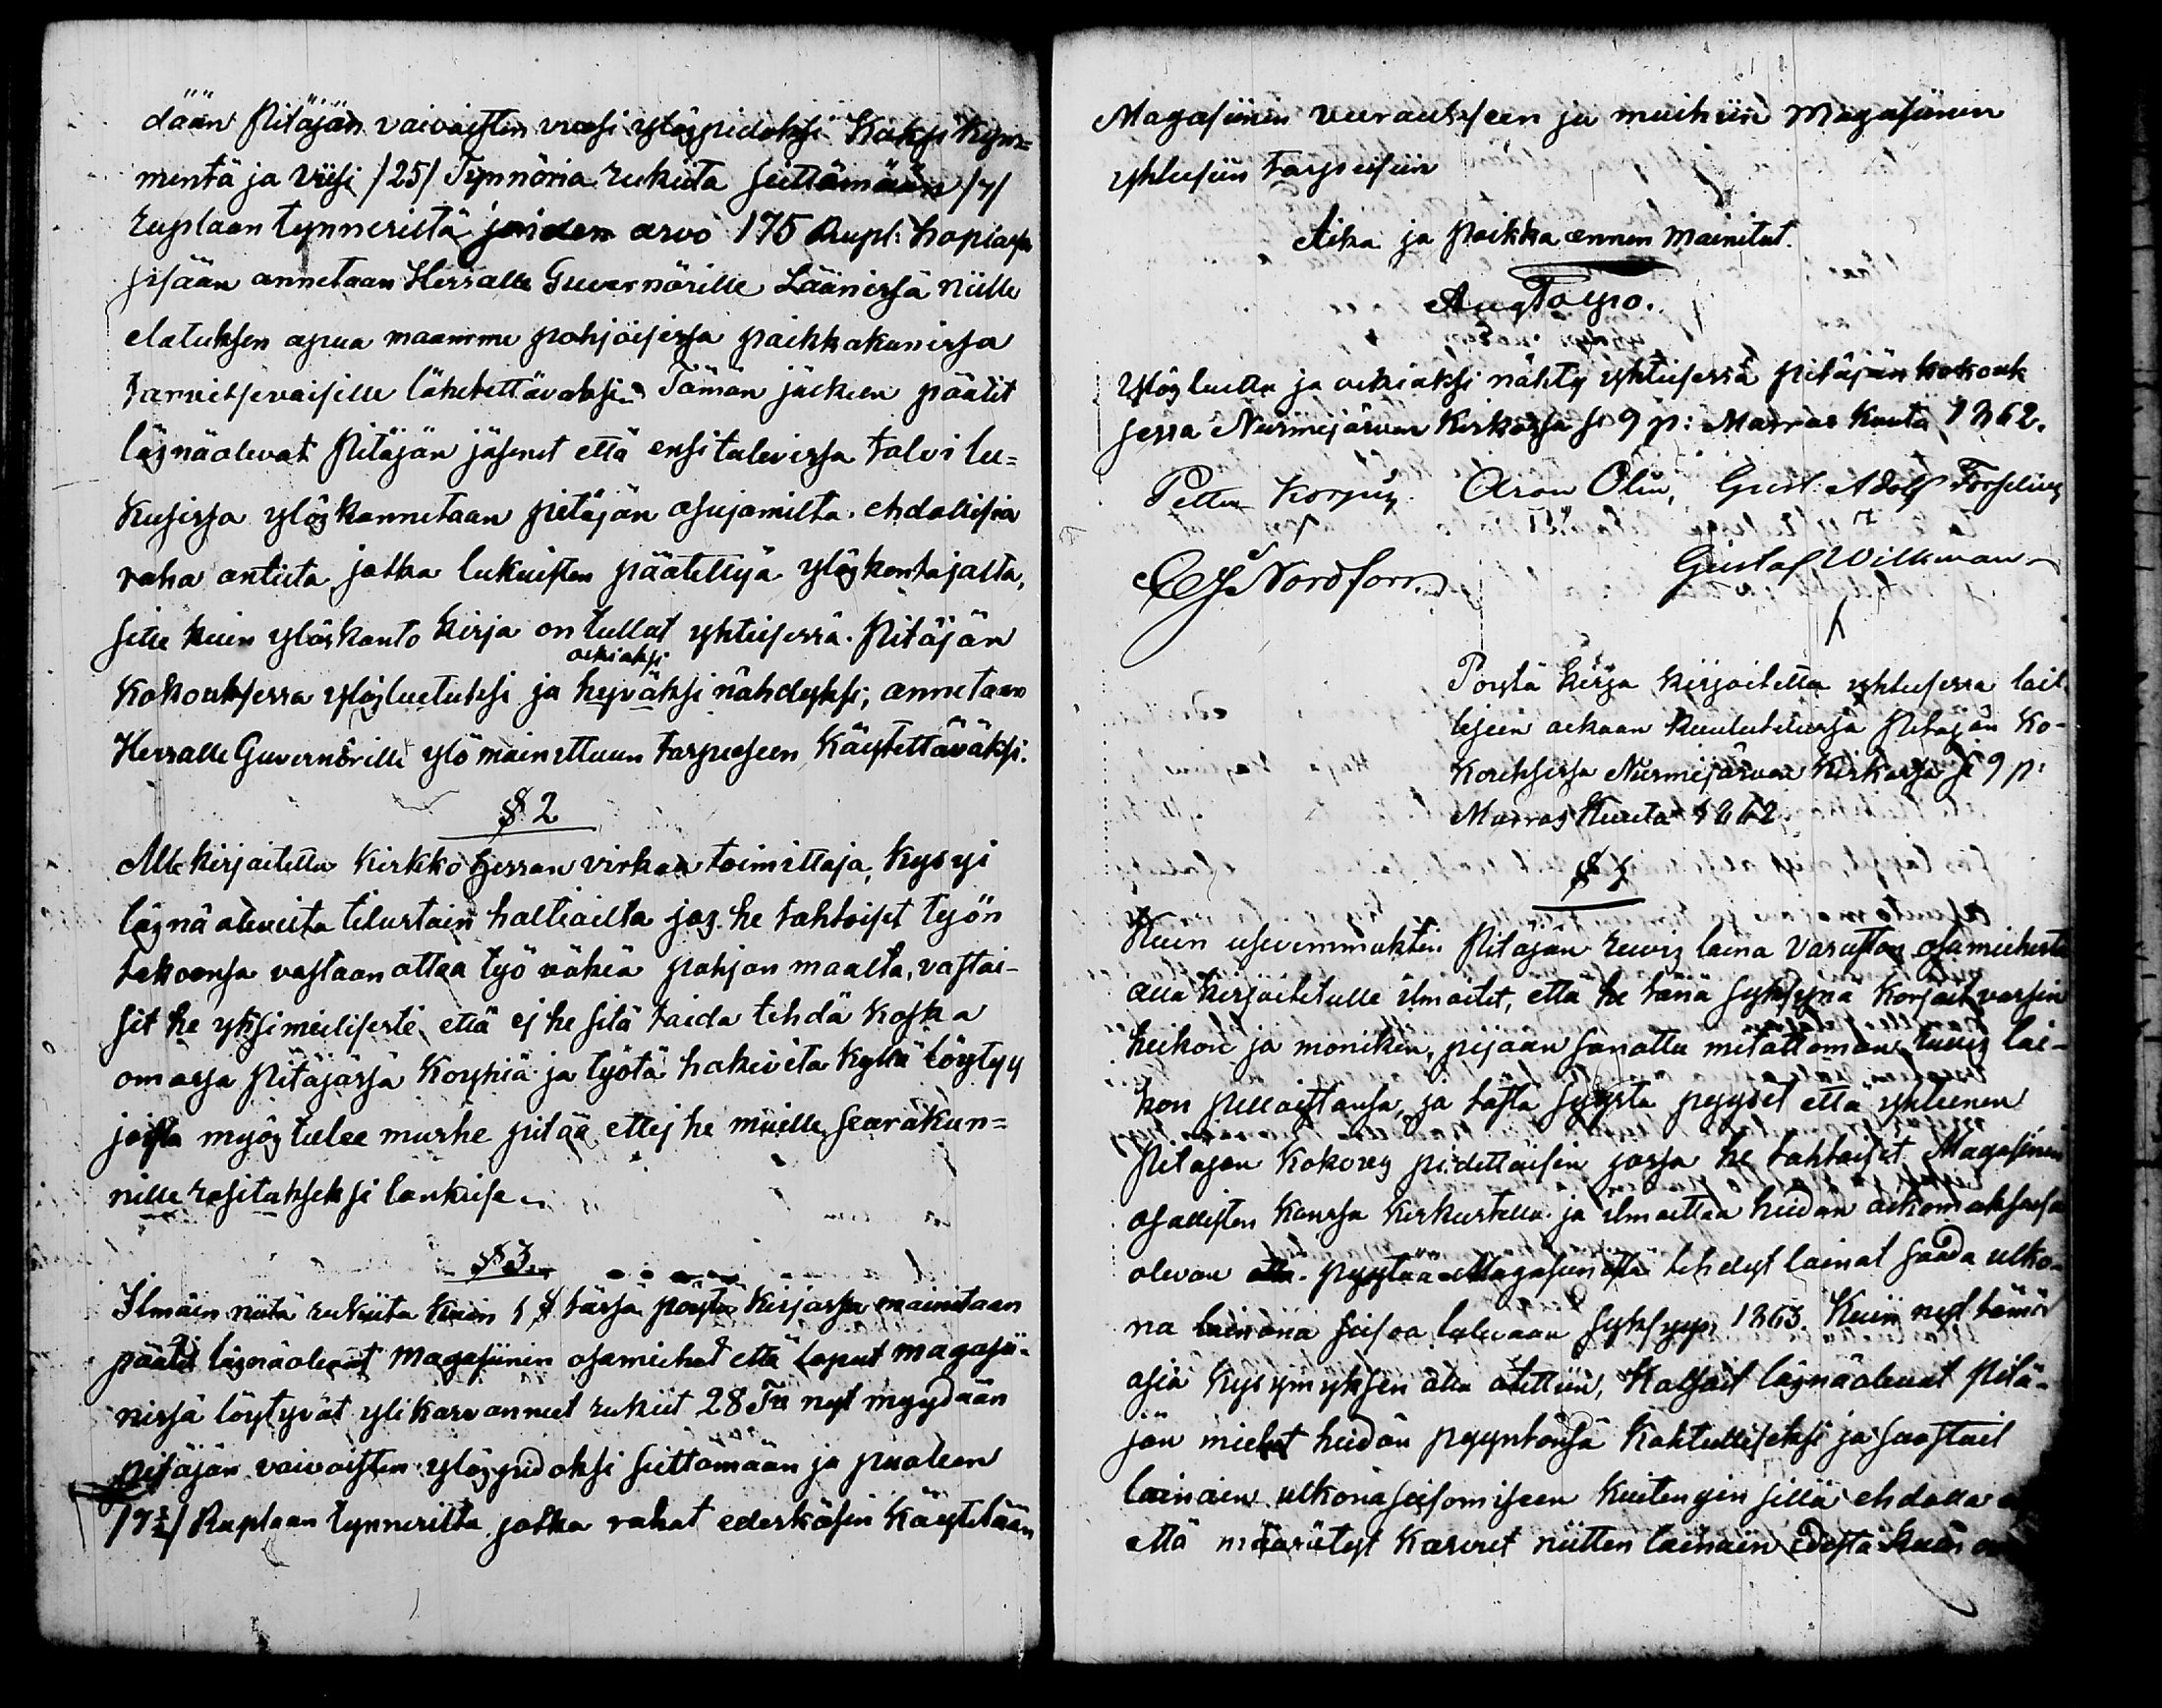 dään Pitäjän vaivaisten vuosi ylöspidoksi Kaksi kym=
mentä ja Viisi /25/ Tynnöriä rukiita seittämään /7/
ruplaan tynneristä joiden arvo 175 Rupl: hopiassa
sisään annetaan Herralle Guvernörille Läänissä niille
elatuksen apua maamme pohjoisissa paikkakunissa
tarvitsevaisille lähetettäväksi. Tämän jäkeen päätit
läsnäolevat Pitäjän jäsenet että ensi talvissa talvi lu=
kusissa ylöskannetaan pitäjän asujamilta ehdollisia
raha antiita jotka lukuisten päätettyä ylöskantajalta,
sitte kuin ylöskanto kirja on tullut yhteisessä Pitäjän
oekiaksi
Kokouksessa ylösluetuksi ja hyväksi nähdyksi; annetaan
Herralle Guvernörille ylömainittuun tarpeeseen Käytettäväksi.
§ 2
Allekirjoitettu Kirkkoherran virkaa toimittaja, Kysyi
läsnä olevilta tilustain haltioilta jos he tahtoisit työn
tekoonsa vastaanottaa työ väkiä pohjan maalta, vastai-
sit he yksimielisesti että ej he sitä taida tehdä koska
omassa Pitäjässä Köyhiä ja työtä hakevita Kyllä löytyy
joista myös tulee murhe pitää ettej he muille seurakun=
nille rasitukseksi lankeise.
§ 3
Ilmäin niitä rukiita kuin 1 § tässä pöytä kirjassa mainitaan
päätit läsnäolevat Magasiinin osamiehet että loput magasii-
nissä löytyvät ylikasvanneet rukiit 28 Tu nyt myydään
pitäjän vaivaisten ylöspidoksi seittämään ja puoleen
/7½/ Ruplaan tynneriltä jotka rahat ederskäsin Käytetään
Magasiinin vuraukseen ja muihiin Magasiinin
yhteisiin tarpeisiin
Aika ja paikka ennen mainitut.
Aug Taypo.
Ylösluettu ja oekiaksi nähty yhteisessä pitäjän kokouk
sessa Nurmijärven Kirkossa se 9 p: Marras Kuuta 1862.
Petter Korpus Aron Olin, Gust. Adolf Forselius
C J Nordforss Gustaf Willman
Poytä kirja kirjoitettu yhteisessä lail
lisen aekaan kuulutetussa Pitäjän Ko-
kouksessa Nurmijärven Kirkossa se 9 p:
Marras Kuuta 1862
§ 1
Kuin usiemmakten Pitäjän ruis laina Varaston osamiehistä
alla kirjoitetulle ilmoitit, että he tänä syksynä korjait varsin
heikon ja moniken, pijaan sanottu mitättömän ruis lai-
hon pelloistansa, ja tästä syystä pyysit että yhteinen
Pitäjän Kokous pidettäisin jossa he tahtoisit Magasinin
osallisten Kanssa Keskustella ja ilmoittaa heidän aikomuksensa
olevan pyytää Magasiinista tehdyt lainat saada ulko-
na lainana seisoa tulevaan syksyyn 1863. Kuin nyt tämä
asia kysymyksen ala otettiin, Katsoit läsnäolevat Pitä-
jän miehet heidän pyyntönsä Kohtulliseksi ja suostuit
lainain ulkonaseisomiseen Kuitengin sillä ehdolla
että määrätyt Kasvut niitten lainain edestä kuin